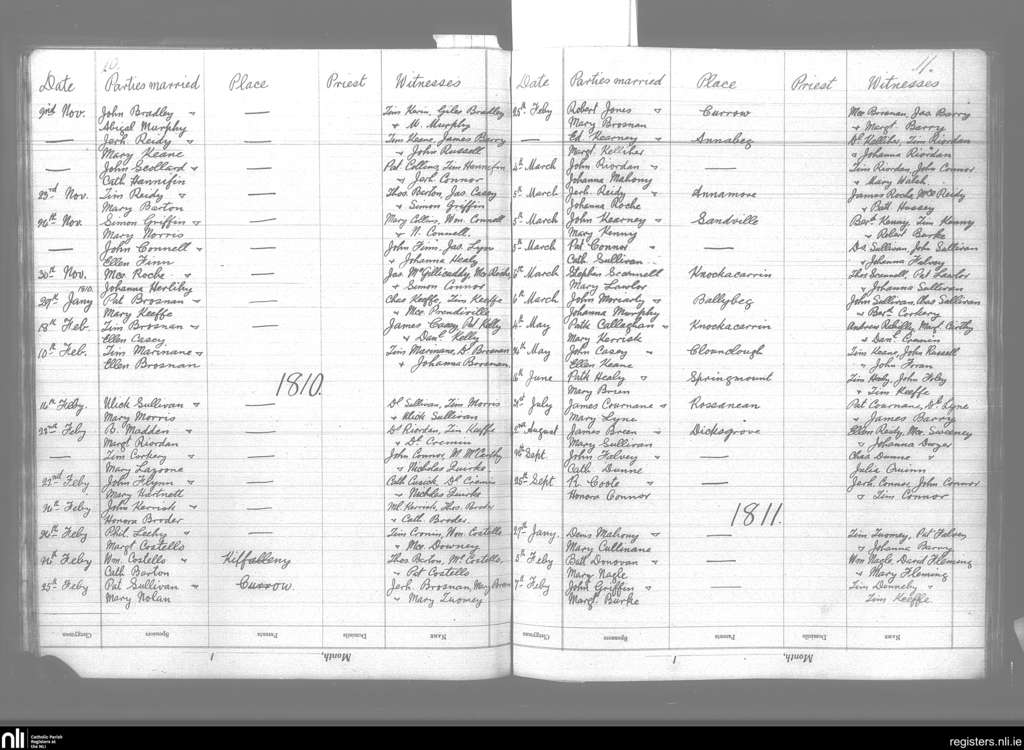 10.
Date Parties married Place Priest Witnesses
3rd Nov. John Bradley & — Tim Kevin, Giles Bradley
Abigal Murphy & M. Murphy
— Jerh. Reidy & — Tim Keane, James Barry
Mary Keane & John Russell
— John Scollard & — Pat Collins, Tim Hannifin
Cath Hannifin & Jerh Connor
23rd Nov. Tim Reidy & — Thos. Barton, Jas Casey
Mary Barton & Simon Griffin
26th Nov. Simon Griffin & — Mary Collins, Wm. Connell
Mary Morris & N. Connell.
— John Connell & — John Finn, Jas. Lyon
Ellen Finn & Johanna Healy
30th Nov. Mce Roche & — Jas. McGillicuddy, Mce Roche
Johanna Herlihy & Simon Connor
1810.
29th Jany Pat Brosnan & — Chas Keeffe, Tim Keeffe
Mary Keeffe & Mce Prendiville
Feb. Tim Brosnan & — James Casey, Pat Kelly
Ellen Casey & Danl. Kelly
10th Feb. Tim Marinane & — Tim Marinane, Dl Brosnan
Ellen Brosnan & Johanna Brosnan.
1810.
Feby. Ulick Sullivan & — Dl Sullivan, Tim Morris
Mary Morris & Ulick Sullivan
22nd Feby B. Madden & — Dl Riordan, Tim Keeffe
Margt Riordan & Dl. Cremin
— Tim Corkery & — John Connor, M. McCarthy
Mary Lagoone & Nicholas Quirke
22nd Feby John Flynn & — Cath Cusick, Dl Cremin
Mary Hartnell & Nicholas Quirke
Feby John Kerrisk & — Ml Kerrisk, Thos. Broder
Honora Broder & Cath. Broder.
Feby Phil. Leahy & — Tim Cronin, Wm. Costello
Margt Costello & Mce Downey
Feby Wm. Costello & Thos Barton, Wm Costello,
Cath Barton & Pat Costello
25th Feby Pat Sullivan & Currow Jerh. Brosnan, Mary Brien
Mary Nolan & Mary Twomey
11.
Date Parties married Place Priest Witnesses
25th Feby Robert Jones & Currow Mce Brosnan, Jas. Barry
Mary Brosnan & Margt. Barry
— Ed. Kearney & Annabeg Dl Kelliher, Tim Riordan
Margt. Kelliher & Johanna Riordan
4th March John Riordan & — Tim Riordan, John Connor
Johanna Mahony & Mary Walsh
5th March Jerh. Reidy & Annamore James Roche, Mce Reidy
Johanna Roche & Batt Hussey
5th March John Kearney & Sandville Bart. Kenny, Tim Kenny
Mary Kenny & Robert Burke
5th March Pat Connor & — Dl Sullivan, John Sullivan
Cath Sullivan & Johanna Falvey
6th March Stephen Scannell Knockacarrin Thos Scannell, Pat Lawlor
Mary Lawlor & Johanna Sullivan
6th March John Moriarty & Ballybeg John Sullivan, Chas Sullivan
Johanna Murphy & Bart. Corkery
May Patk Callaghan & Knockacarrin
Mary Kerrisk & Danl. Cremin
May John Casey & Clounclough Tim Keane, John Russell
Ellen Keane & John Foran
June Patk Healy & Springmount Tim Healy, John Foley
Mary Brien & Tim Keeffe
July James Cournane & Rossanean Pat Cournane, Dl. Lyne
Mary Lyne & James Barry
August James Breen & Dicksgrove Ellen Reidy, Mce. Sweeney
Mary Sullivan & Johanna Dwyer
Sept. John Falvey & — Chas Dunne &
Cath Dunne Julia Quinn
25th Sept R. Coote & — Jerh. Connor, John Connor
Honora Connor & Tim Connor
1811.
Jany. Denis Mahony & — Tim Twomey, Pat Falvey
Mary Cullinane & Johanna Barry
5th Feby Batt Donovan & — Wm Nagle, David Fleming
Mary Nagle & Mary Fleming
7th Feby John Griffin & — Tim Dennehy &
Margt. Burke Tim Keeffe
Clergyman Sponsors Parents Domicile Name Clergyman Sponsors Parents Domicile Name
Month, 1 Month, 1
nli Catholic Parish
Registers at
the NLI
registers.nli.ie